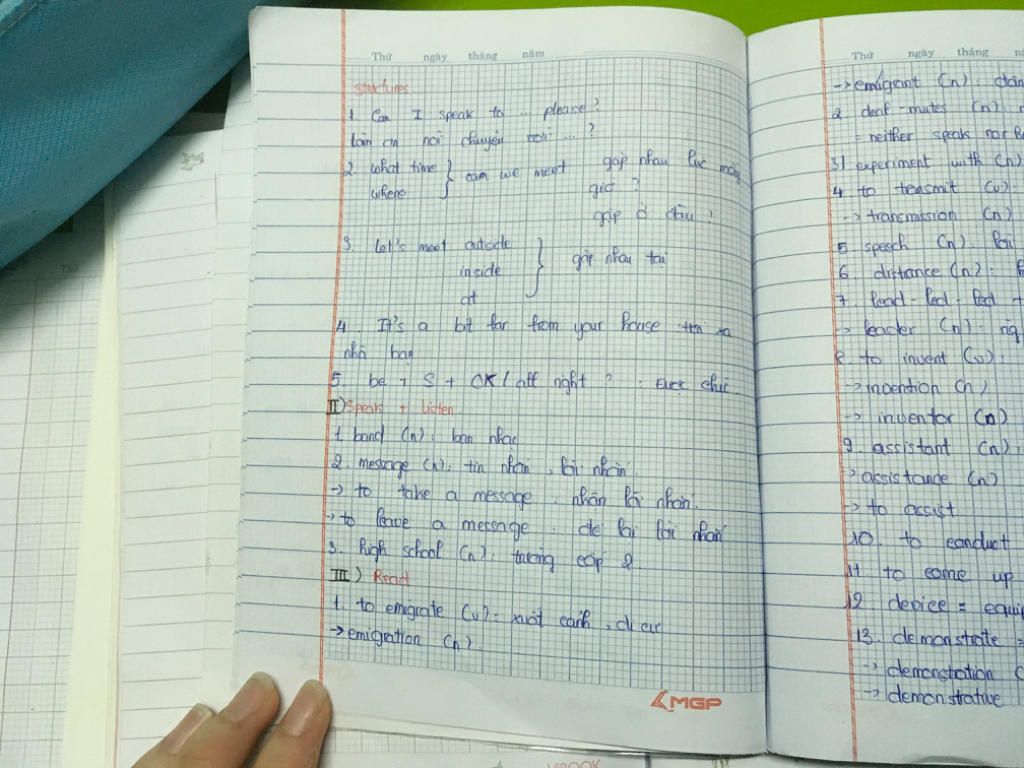 Thứ ngày tháng năm
Structures
1. Can I speak to ... please?
Làm ơn nói chuyện với ... ?
2. What time } can we meet gặp nhau lúc mấy
where giờ ?
gặp ở đâu ?
3. Let's meet outside } gặp nhau tại
inside
at
4. It's a bit far from your house xa
nhà bạn
5. be + S + OK / all right ? : Được chứ
II) Speak + Listen
1. band (n): ban nhạc
2. message (n): tin nhắn, lời nhắn
-> to take a message: nhắn lời nhắn
-> to leave a message: để lại lời nhắn
3. high school (n): trường cấp 2
III) Read
1. to emigrate (v): xuất cảnh, di cư
-> emigration (n)
MGP
Thứ ngày tháng
-> emigrant (n): dân
2 deaf-mutes (n)
= neither speak nor
3) experiment with (n)
4 to transmit (v):
-> transmission (n)
5. speech (n). lời
6. distance (n):
7. lead - led - led
-> leader (n): ng
8 to invent (v):
-> invention (n)
-> inventor (n)
9. assistant (n):
-> assistance (n)
-> to assist
10. to conduct
11. to come up
12. device = equip
13. demonstrate =
-> demonstration
-> demonstrative